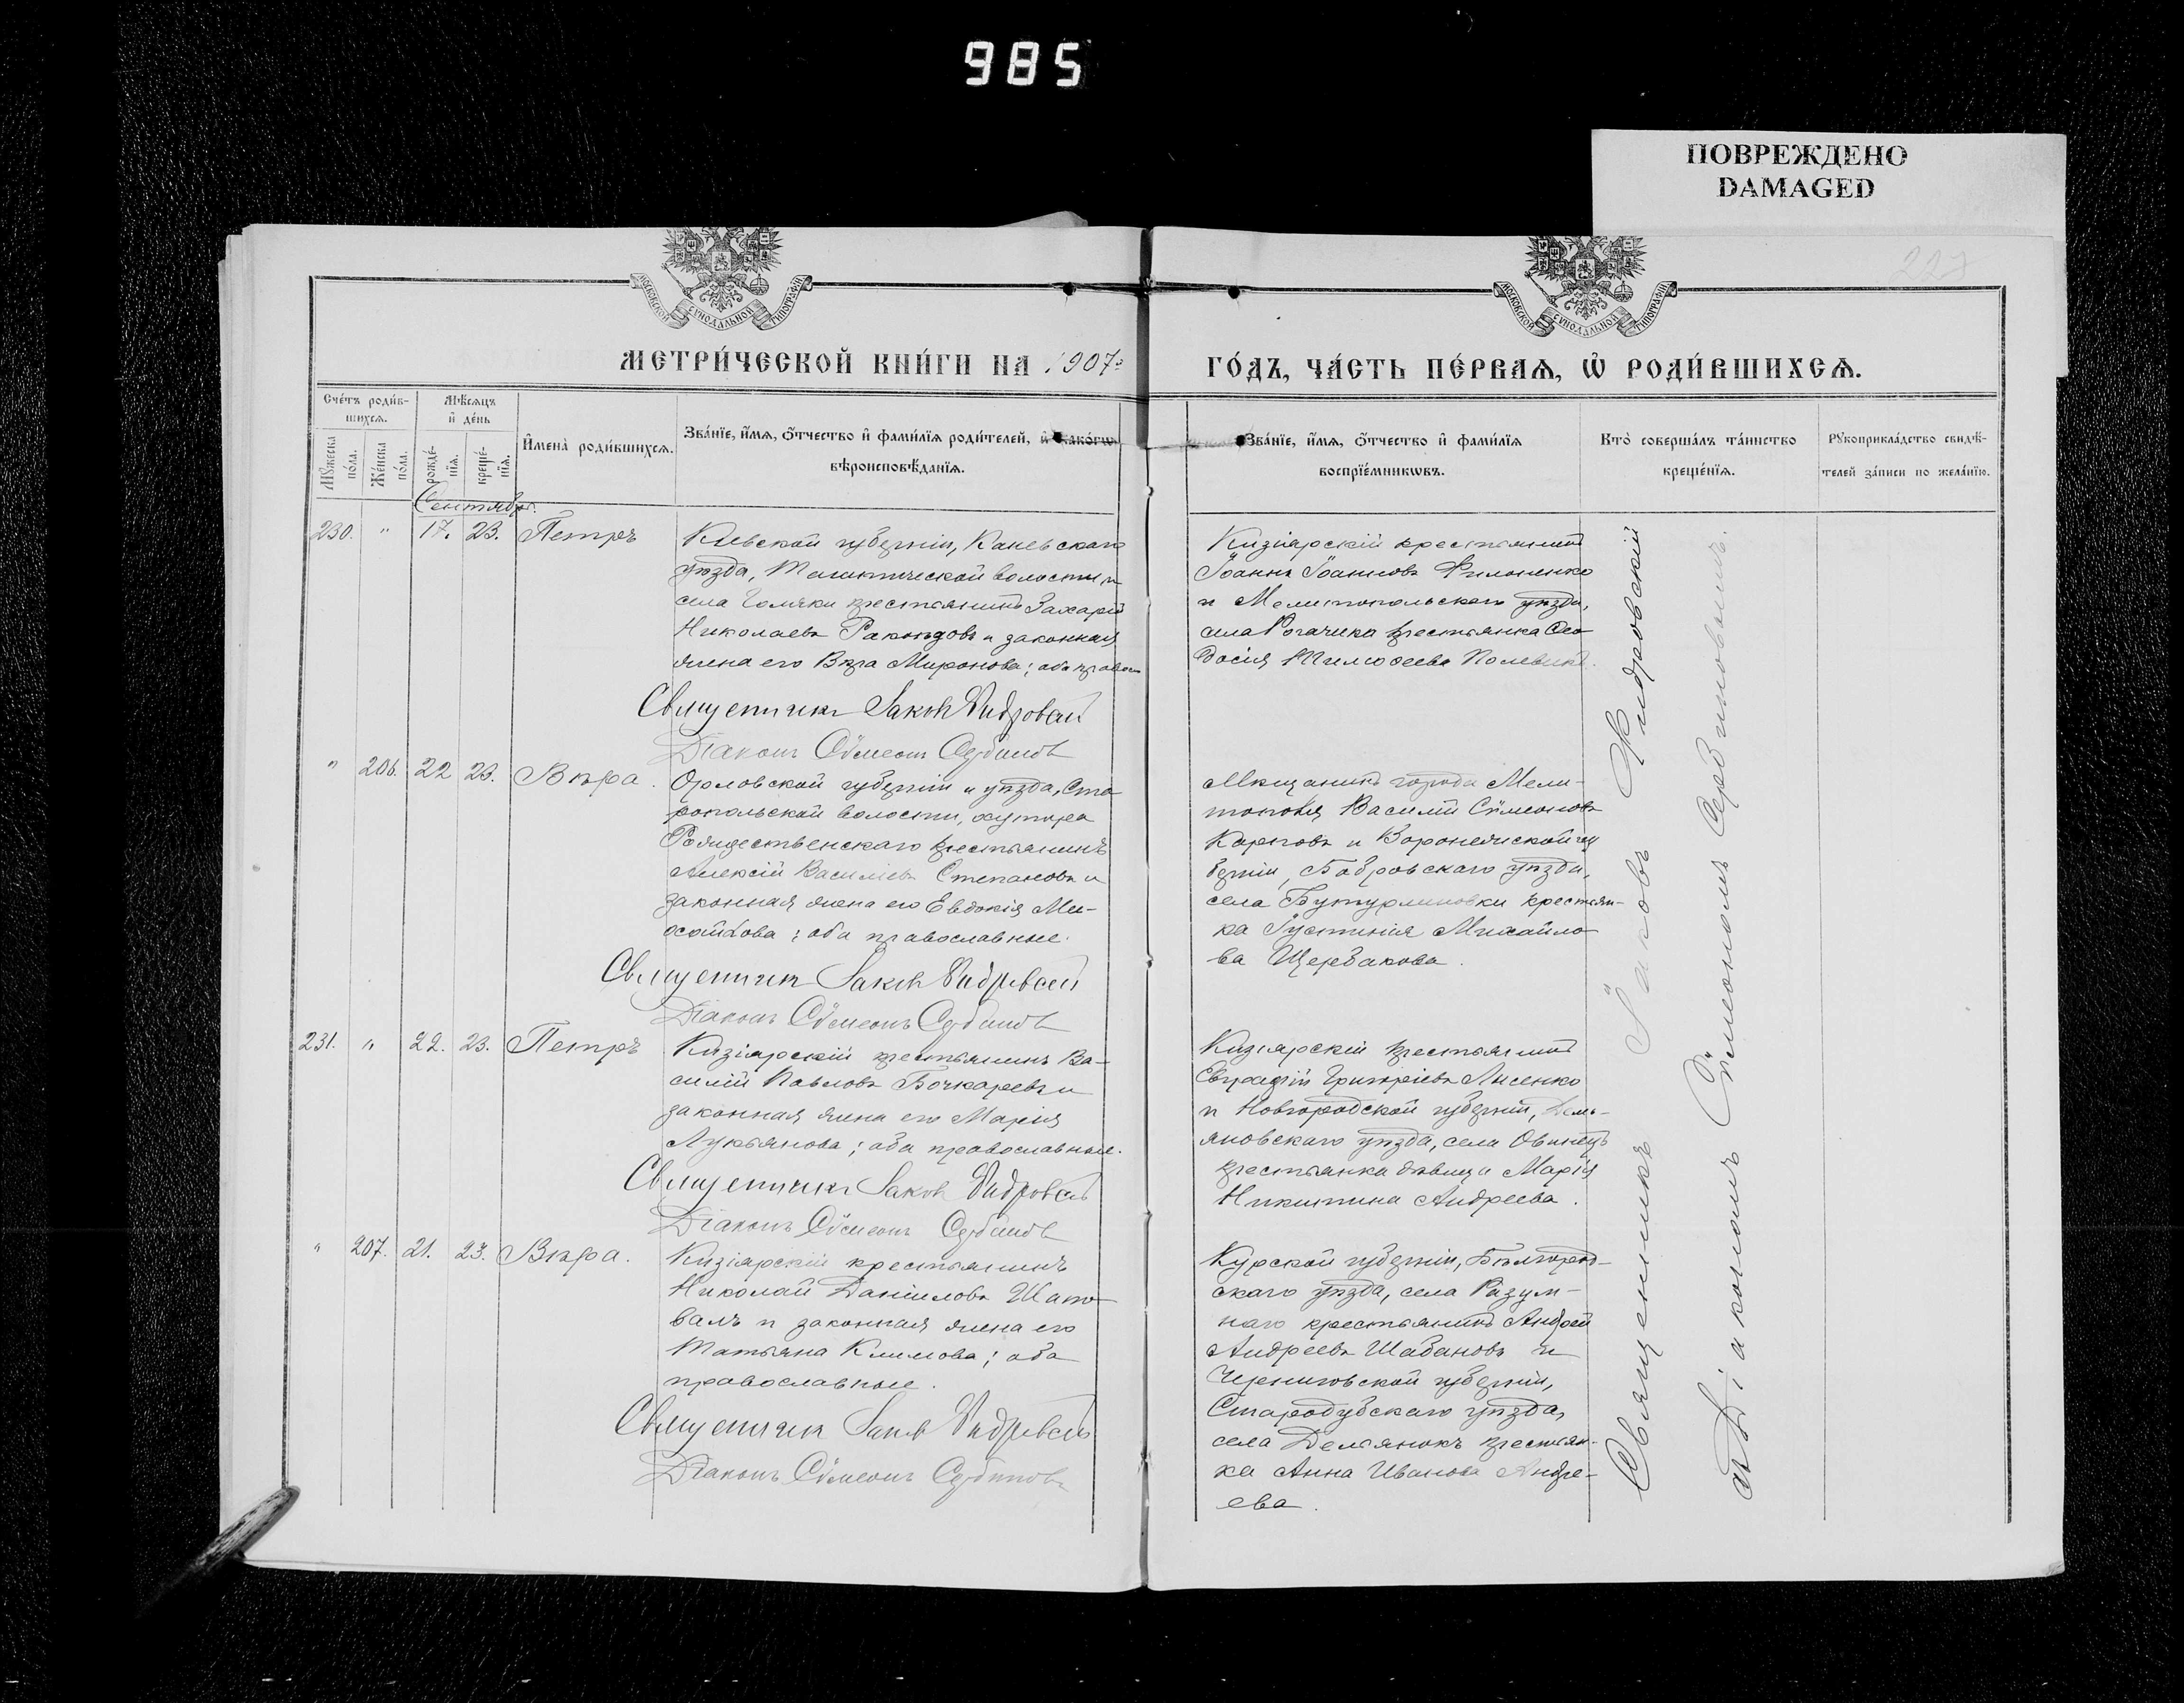 985
ПОВРЕЖДЕНО
DAMAGED
227
МОСКОВСКОЙ СУНОДАЛЬНОЙ ТИПОГРАФІИ
МОСКОВСКОЙ СУНОДАЛЬНОЙ ТИПОГРАФІИ
МЕТРИ́ЧЕСКОЙ КНИ́ГИ НА 1907г
ГО́ДЪ, ЧА́СТЬ ПЕ́РВАѦ, Ѡ҆ РОДИ́ВШИХСѦ.
Сче́тъ роди́в-
шихсѧ.
Мꙋ́жеска по́ла.
Же́нска по́ла.
Мѣ́сѧцъ
и҆ де́нь
рожде́-
нїѧ.
креще́-
нїѧ.
И҆мена̀ роди́вшихсѧ.
Зва́нїе, и҆́мѧ, ѻ҆́тчество и҆ фами́лїѧ роди́телей, и҆ како́гѡ
вѣроисповѣ́данїѧ.
Зва́нїе, и҆́мѧ, ѻ҆́тчество и҆ фами́лїѧ
воспрїе́мникѡвъ.
Кто̀ соверша́лъ та́инство
креще́нїѧ.
Рꙋкоприкла́дство свидѣ́-
телей за́писи по жела́нїю.
Сентябрь.
230. " 17. 23. Петръ
Кіевской губерніи, Каневскаго
уѣзда, волости
села крестьянинъ Захарій
Николаевъ и законная
жена его Вѣра Миронова; оба правос
Священникъ Іаковъ Фидровскій
Діаконъ Сѷмеонъ Сербиновъ
Кизіярскій крестьянинъ
Іоаннъ Іоанновъ Филоненко
и Мелитопольскаго уѣзда,
села Рогачика крестьянка Ѳео
досія Тимоѳеева
" 206. 22 23. Вѣра.
Орловской губерніи и уѣзда, Ста
ропольской волости, хутора
Рождественскаго крестьянинъ
Алексій Василіевъ Степановъ и
законная жена его Евдокія Ми-
хайлова; оба православные.
Священникъ Іаковъ Фидровскій
Діаконъ Сѷмеонъ Сербиновъ
Мѣщанинъ города Мели-
тополя Василій Сѷмеоновъ
Карповъ и Воронежской гу
берніи, Бобровскаго уѣзда,
села Бутурлиновки крестьян-
ка Іустинія Михайло
ва Щербакова.
231. " 22. 23. Петръ
Кизіярскій крестьянинъ Ва-
силій Павловъ Бочкаревъ и
законная жена его Марія
Лукьянова; оба православные.
Священникъ Іаковъ Фидровскій
Діаконъ Сѷмеонъ Сербиновъ
Кизіярскій крестьянинъ
Григоріевъ Лисенко
и Новгородской губерніи, Демь-
яновскаго уѣзда, села Овинецъ
крестьянка дѣвица Марія
Никитина Андреева.
" 207. 21. 23. Вѣра.
Кизіярскій крестьянинъ
Николай Даніиловъ Шапо-
валъ и законная жена его
Татьяна Климова; оба
православные.
Священникъ Іаковъ Фидровскій
Діаконъ Сѷмеонъ Сербиновъ
Курской губерніи, Бѣлгород-
скаго уѣзда, села Разум-
наго крестьянинъ Андрей
Андреевъ Шабановъ и
Черниговской губерніи,
Стародубскаго уѣзда,
села крестьян-
ка Анна Иванова Андре-
ева.
Священникъ Іаковъ Фидровскій
съ Діакономъ Сѷмеономъ Сербиновымъ.